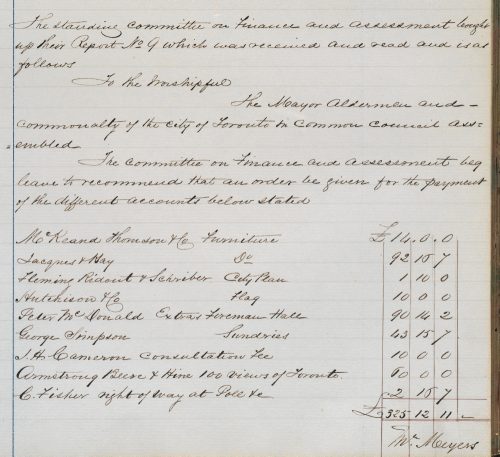 The standing committee on Finance and assessment brought
up their Report No 9 which was received and read and is as
follows
To the Worshipful
The Mayor Aldermen and
commonalty of the city of Toronto in Common Council ass-
embled
The committee on Finance and assessment beg
leave to recommend that an order be given for the payment
of the different accounts below stated
McKeand Thomson & Co Furniture £ 14 . 0 . 0
Jacques & Hay Do 92 15 7
Fleming Ridout & Schriber City Plan 1 10 0
Hutchison & Co Flag 10 0 0
Peter McDonald Extras Foreman Hall 90 14 2
George Simpson Sundries 43 15 7
J. H. Cameron Consultation Fee 10 0 0
Armstrong Beere & Hine 100 views of Toronto 60 0 0
C. Fisher right of way at Poll &c 2 15 7
£ 325 12 11
Mr. Meyers